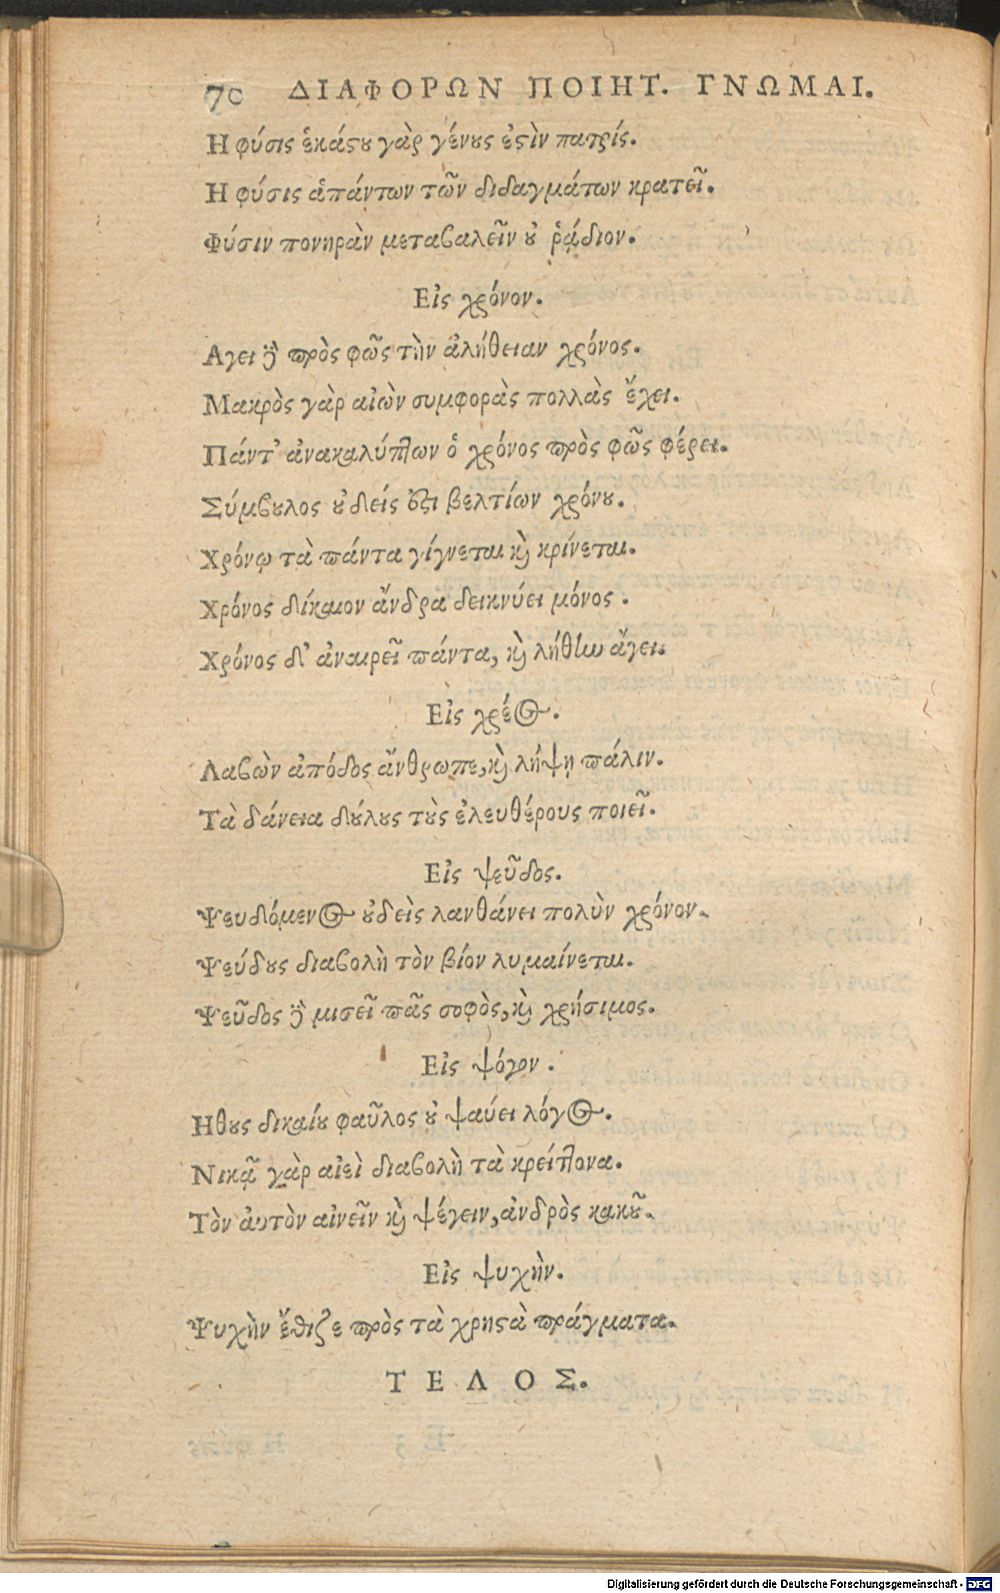 70 ΔΙΑΦΟΡΩΝ ΠΟΙΗΤ. ΓΝΩΜΑΙ.
Η φύσις ἑκάϛȣ γὰρ γένȣς ἐϛὶν πατρίς.
Η φύσις ἁπάντων τῶν διδαγμάτων κρατεῖ.
Φύσιν πονηρὰν μεταβαλεῖν ȣ ῥᾴδιον.
Εἰς χρόνον.
Αγει δὲ πρὸς φῶς τὴν ἀλήθειαν χρόνος.
Μακρὸς γὰρ αἰὼν συμφορὰς πολλὰς ἔχει.
Πάντ' ἀνακαλύπτων ὁ χρόνος πρὸς φῶς φέρει.
Σύμβȣλος ȣδείς ἐϛι βελτίων χρόνȣ.
Χρόνῳ τὰ πάντα γίγνεται κὶ κρίνεται.
Χρόνος δίκαιον ἄνδρα δεικνύει μόνος.
Χρόνος δ' ἀναιρεῖ πάντα, κὶ λήθην ἄγει.
Εἰς χρέος.
Λαβὼν ἀπόδος ἄνθρωπε, κὶ λήψῃ πάλιν.
Τὰ δάνεια δȣ́λȣς τȣ̀ς ἐλευθέρους ποιεῖ.
Εἰς ψεῦδος.
Ψευδόμενος ȣδεὶς λανθάνει πολὺν χρόνον.
Ψεύδȣς διαβολὴ τὸν βίον λυμαίνεται.
Ψεῦδος δὲ μισεῖ πᾶς σοφὸς, κὶ χρήσιμος.
Εἰς ψόγον.
Ηθȣς δικαίȣ φαῦλος ȣ ψαύει λόγος.
Νικᾷ γὰρ αἰεὶ διαβολὴ τὰ κρείττονα.
Τὸν αὐτὸν αἰνεῖν κὶ ψέγειν, ἀνδρὸς κακȣ͂.
Εἰς ψυχὴν.
Ψυχὴν ἔθιζε πρὸς τὰ χρηϛὰ πράγματα.
ΤΕΛΟΣ.
Digitalisierung gefördert durch die Deutsche Forschungsgemeinschaft - DFG